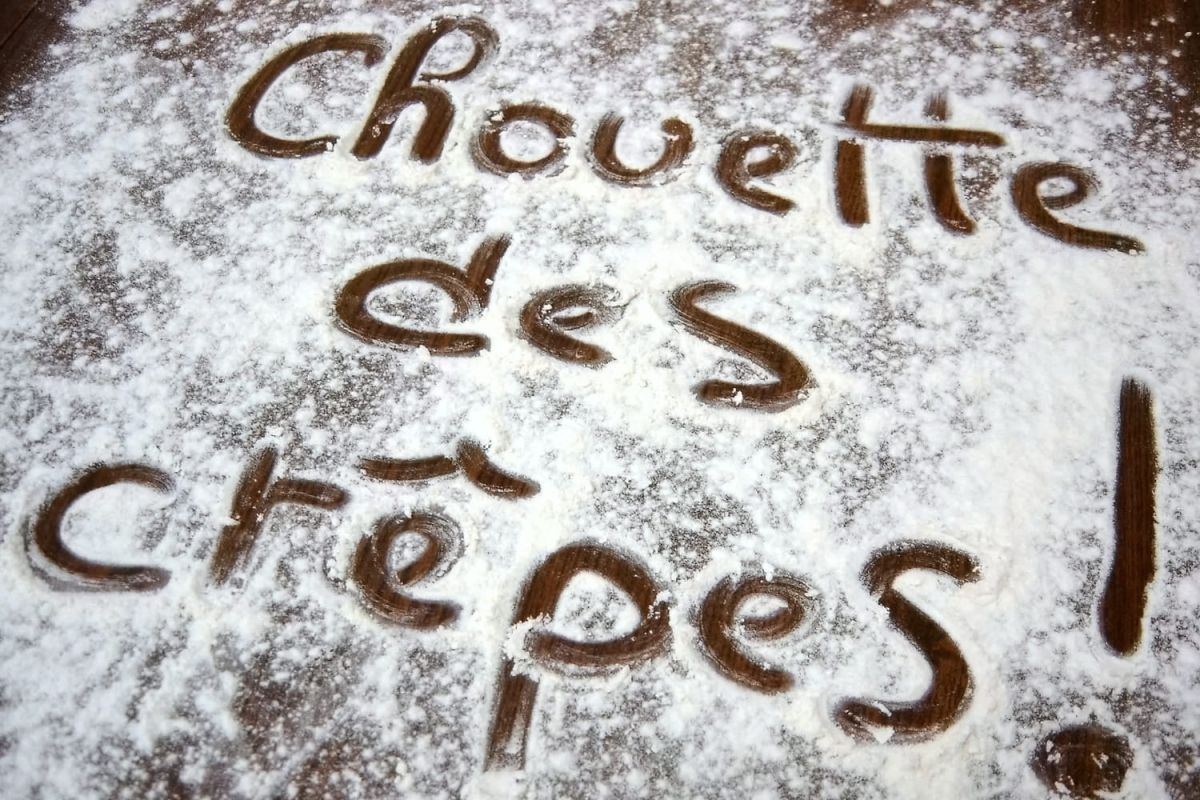 Chouette
des
crêpes!